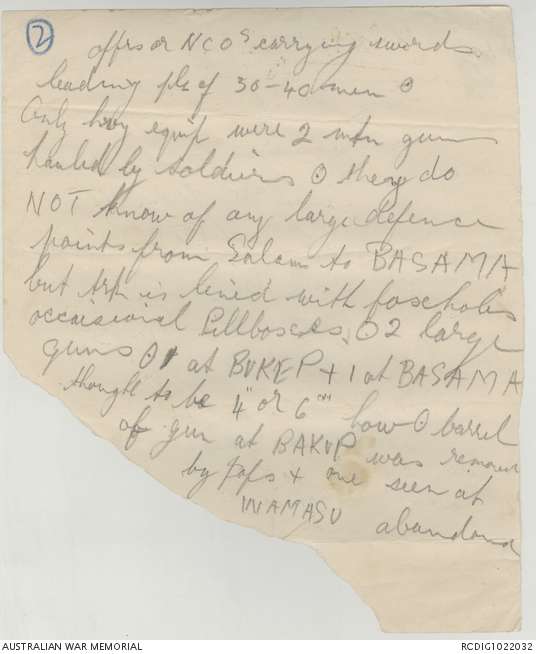 2
offrs or NCOs carrying swords
leading pls of 30-40 men ⊙
Only hvy equip were 2 mtn guns
hauled by soldiers ⊙ they do
NOT know of any large defence
points from Salem to BASAMA
but trk is lined with foxcholes
occaisional Pillboxes. ⊙ 2 large
guns ⊙ 1 at BUKEP + 1 at BASAMA
thought to be 4" or 6" how ⊙ barrel
of gun at BAKUP was remove
by Japs + one seen at
WAMASU abandond
AUSTRALIAN WAR MEMORIAL
RCDIG1022032